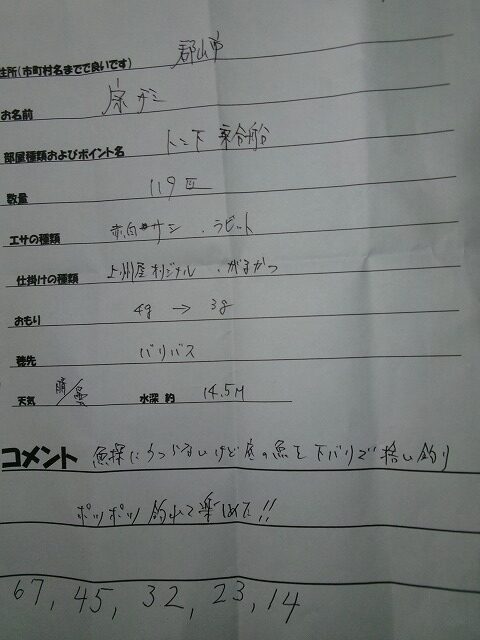 住所(市町村名までで良いです) 郡山市
お名前
部屋種類およびポイント名 トン下 乗合船
数量 119匹
エサの種類 赤白サシ、ラビット
仕掛けの種類 上州屋オリジナル、がまかつ
おもり 4g → 3g
穂先 バリバス
天気 晴/曇 水深 約 14.5M
コメント 魚探にうつらないけど底の魚を下バリで拾い釣り
ポツポツ釣れて楽しめた!!
67, 45, 32, 23, 14